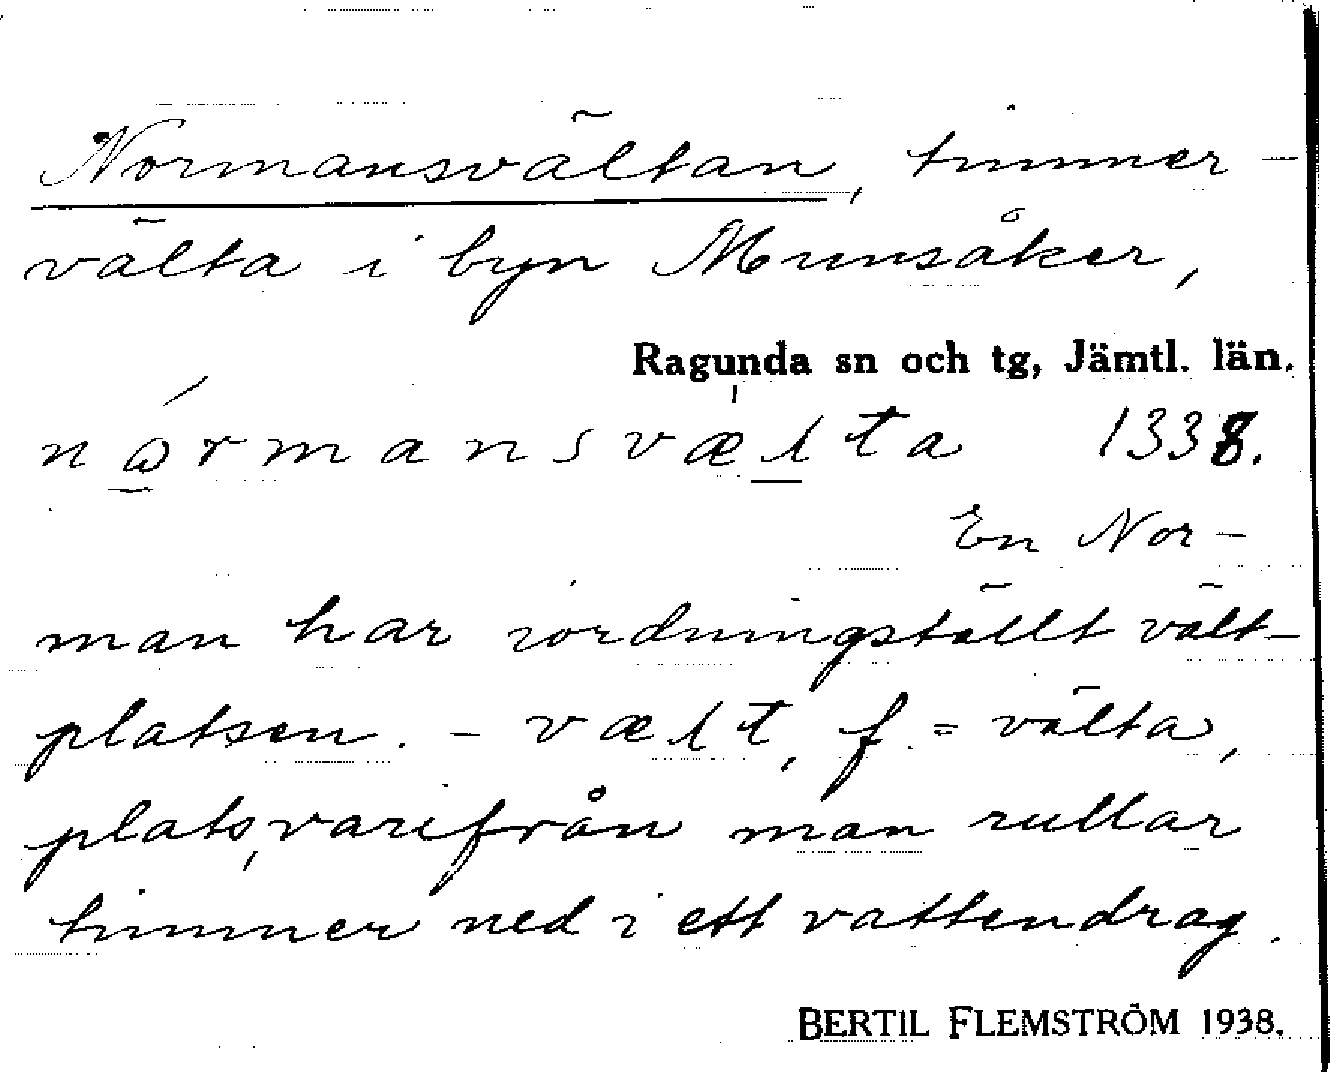 Normansvältan, timmer-
välta i byn Munsåker,
Ragunda sn och tg, Jämtl. län.
nørmansvælta 1338.
En Nor-
man har iordningställt vält-
platsen. - vælt, f. = välta,
plats, varifrån man rullar
timmer ned i ett vattendrag.
BERTIL FLEMSTRÖM 1938.